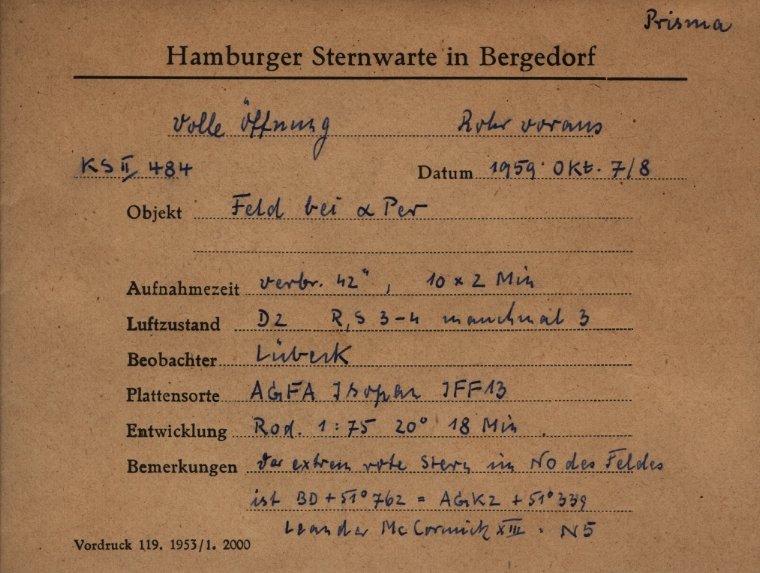 Prisma
Hamburger Sternwarte in Bergedorf
Volle Öffnung Rohr voraus
KS II 484 Datum 1959 Okt. 7/8
Objekt Feld bei α Per
Aufnahmezeit verbr. 42", 10 x 2 Min
Luftzustand D2 R, S 3-4 manchmal 3
Beobachter Lübeck
Plattensorte AGFA Isopan IFF13
Entwicklung Rod. 1:75 20° 18 Min
Bemerkungen Der extrem rote Stern im NO des Feldes
ist BD+51°762 = AGK2 +51°339
Leander McCormick XIII. N5
Vordruck 119. 1953/1. 2000